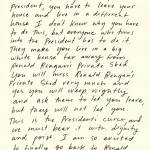 President, you have to leave your
house and live in a different
house I don't know why you have
to do this, but everyone who turns
into the President has to do it
They make you live in a big
white house far away from
Ronald Reagan's Private Shed
You will miss Ronald Reagan's
Private Shed very much and
yes you will weep nightly
and ask them to let you leave,
but they will not let you
This is the President's curse, and
we must bear it with dignity
and poise I am so excited
to finally go back to Ronald